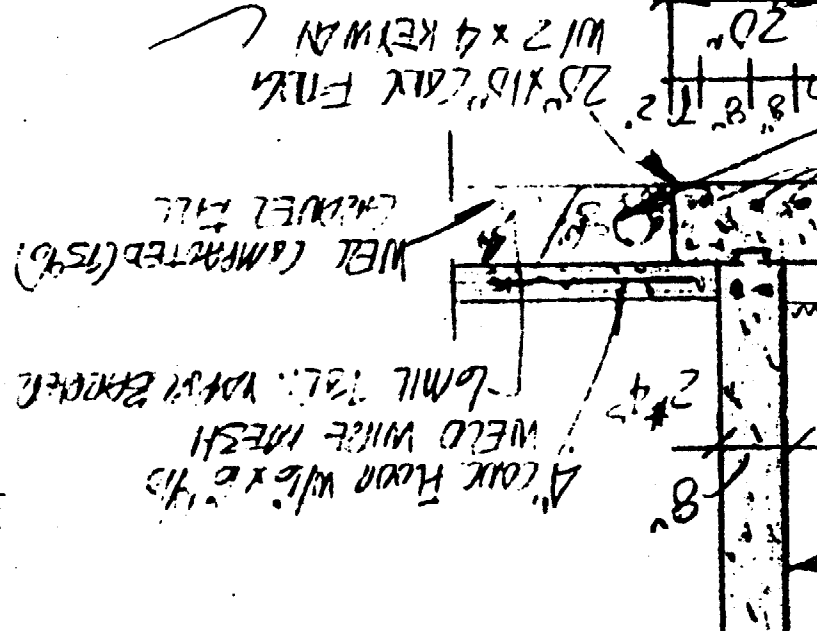 8"
4" CONC FLOOR W/6" x 6" #10
WELD WIRE MESH
6 MIL POL. VAPOR BARRIER
2 #4'S
WELL COMPACTED (95%)
GRAVEL FILL
4"
20" x 10" CONC FTNG
W/ 2 x 4 KEYWAY
2"
8"
8"
20"